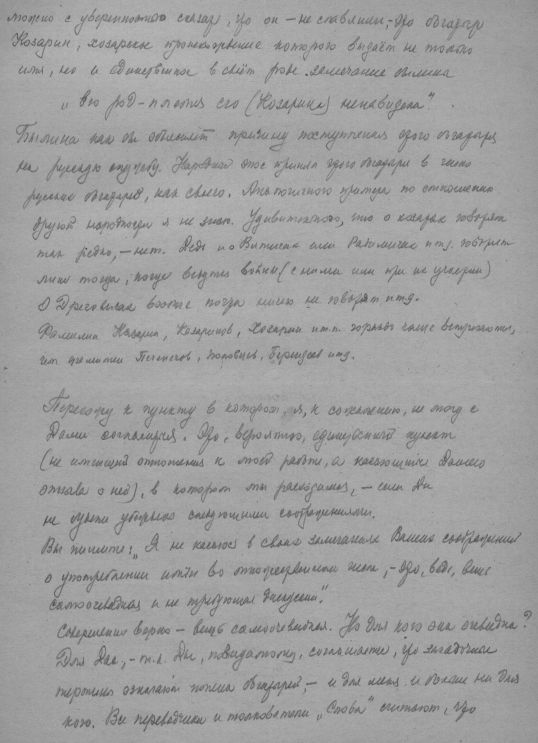 можно с уверенностью сказать, что он – не славянин, – это богатырь
Козарин, хозарское происхождение которого выдаёт не только
имя, но и единственное в своём роде замечание былины
„его род-племя его (Козарина) ненавидела".
Былина как бы объясняет причину поступления этого богатыря
на русскую службу. Народный эпос принял этого богатыря в число
русских богатырей, как своего. Аналогичного примера по отношению
другой народности я не знаю. Удивительного, что о хозарах говорят
так редко, – нет. Ведь и о Вятичах или Радимичах и т.д. говорят
лишь тогда, когда ведутся войны (с ними или при их участии)
О Дреговичах вообще почти ничего не говорят и т.д.
Фамилии Казарин, Казаринов, Хозарин и т.п. гораздо чаще встречаются,
чем фамилии Печенегов, Половцев, Берендеев и т.д.
Перехожу к пункту в котором, я, к сожалению, не могу с
Вами согласиться. Это, вероятно, единственный пункт
(не имеющий отношения к моей работе, а касающийся Вашего
отзыва о ней), в котором мы расходимся, – если Вы
не будете убеждены следующими соображениями.
Вы пишете: „Я не касаюсь в своих замечаниях Ваших соображений
о употреблении имён во множественном числе, – это, ведь, вещь
самоочевидная и не требующая дискуссии".
Совершенно верно – вещь самоочевидная. Но для кого она очевидна?
Для Вас, – т.к. Вы, по-видимому, согласны, что загадочные
термины означают имена богатырей, – и для меня и больше ни для
кого. Все переводчики и толкователи „Слова" считают, что